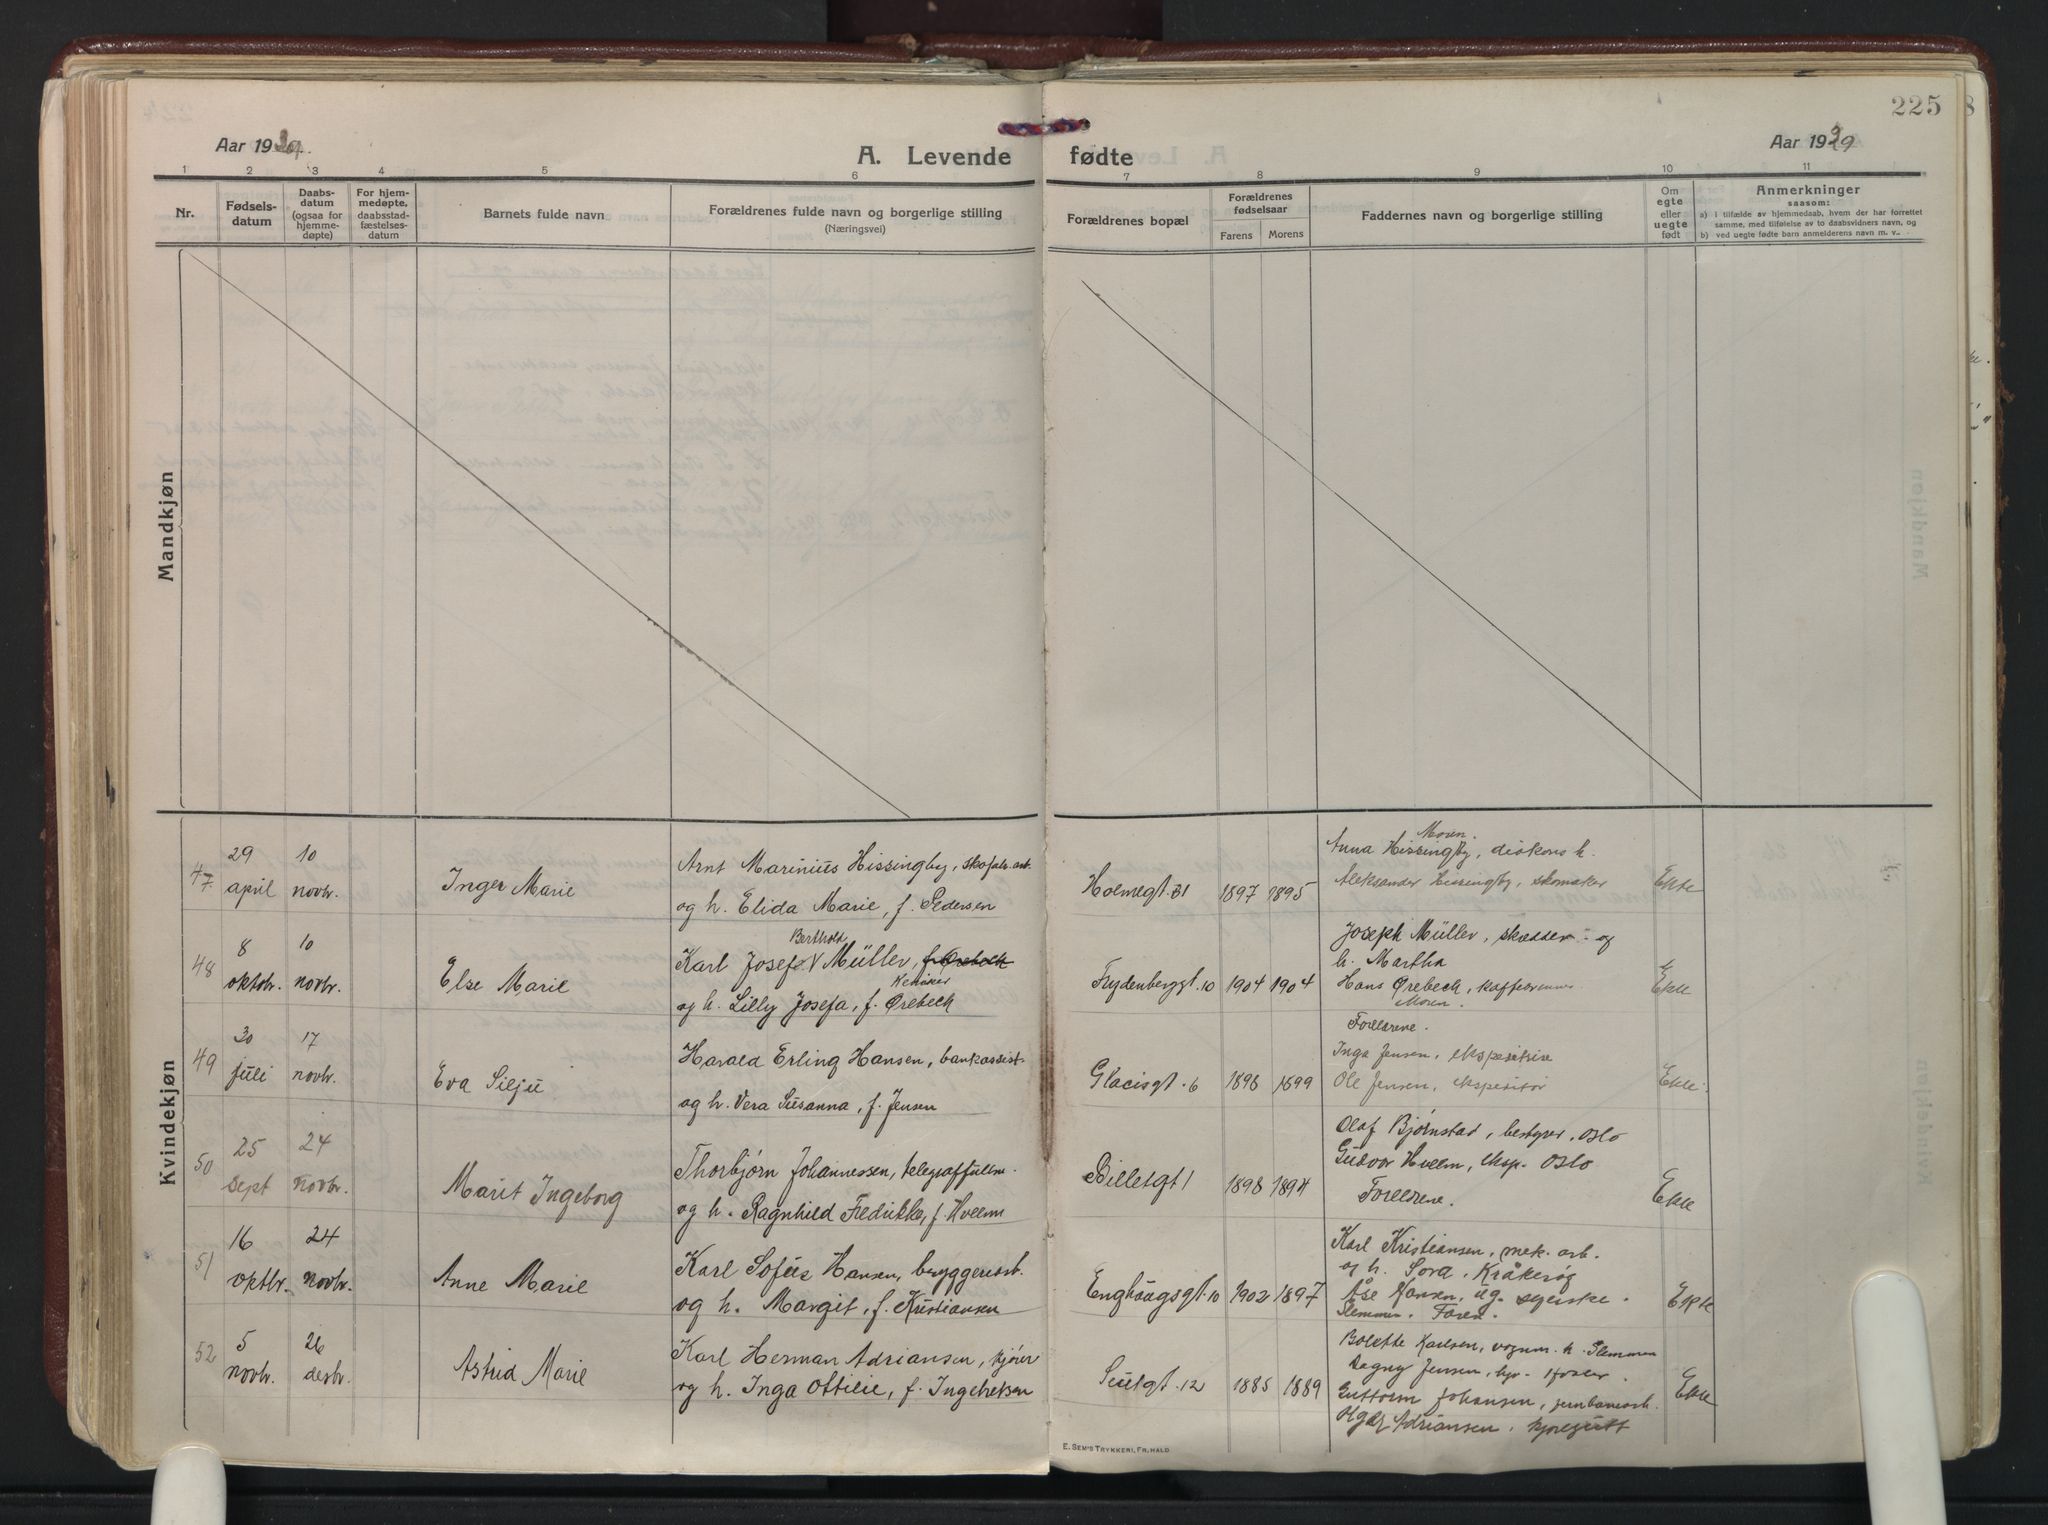 225
Aar 1929
A. Levende fødte
Aar 1929
1 2 3 4 5 6 7 8 9 10 11
Nr.
Fødsels-
datum
Daabs-
datum
(ogsaa for
hjemme-
døpte)
For hjem-
medøpte,
daabsstad-
fæstelses-
datum
Barnets fulde navn
Forældrenes fulde navn og borgerlige stilling
(Næringsvei)
Forældrenes bopæl
Forældrenes
fødselsaar
Farens Morens
Faddernes navn og borgerlige stilling
Om
egte
eller
uegte
født
Anmerkninger
saasom:
a) i tilfælde av hjemmedaab, hvem der har forrettet
samme, med tilføielse av to daabsvidners navn, og
b) ved uegte fødte barn anmelderens navn m. v.
Mandkjøn
Kvindekjøn
47
29
april
10
novbr.
Inger Marie
Arnt Marinius Hissingby, skofabr. arb.
og h. Elida Marie, f. Pedersen
Holmegt. 31
1897 1895
Moren.
Anna Hissingby, diskons h.
Aleksander Hissingby, skomaker
Ekte
48
8
oktbr.
10
novbr.
Else Marie
Berthold
Karl Josef V Müller, f. Ørebech
Kemiker
og h. Lilly Josefa, f. Ørebech
Frydenberggt. 10
1904 1904
Joseph Müller, skredder og
h. Martha
Hans Ørebech, kaffebrenner
Moren.
Ekte
49
30
juli
17
novbr.
Eva Silju
Harald Erling Hansen, bankassist.
og h. Vera Susanna, f. Jensen
Glacisgt. 6
1898 1899
Foreldrene.
Inga Jensen, ekspeditrise
Ole Jensen, ekspeditør
Ekte.
50
25
sept
24
novbr.
Marit Ingeborg
Thorbjørn Johannessen, telegraffullm.
og h. Ragnhild Fredrikke, f. Hveem
Billetgt 1
1898 1894
Olaf Bjørnstad, bestyrer, Oslo
Gudvor Hveem, eksp. Oslo
Foreldrene.
Ekte
51
16
oktbr.
24
novbr.
Anne Marie
Karl Sofus Hansen, bryggeriarb.
og h. Margit, f. Kristiansen
Enghaugsgt. 10
1902 1897
Karl Kristiansen, mek. arb.
og h. Sora, Kråkerøy
Åse Hansen, ug. syerske.
Glemmen. Faren.
Ekte
52
5
novbr.
26
desbr.
Astrid Marie
Karl Herman Adriansen, kjører
og h. Inga Ottilie, f. Ingebretsen
1885 1889
Bolette Karlsen, vognm. h. Glemmen
Dagny Jensen,
Guttorm Johansen, jernbanearb.
Adriansen, kjøregutt
Ekte
E. SEM'S TRYKKERI, FR.HALD